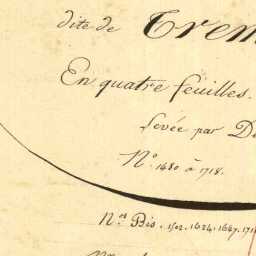 dite de Trem
En quatre feuilles.
Levée par D
N.º 1480 à 1718.
N.os Bis. 1502. 1624. 1647. 171